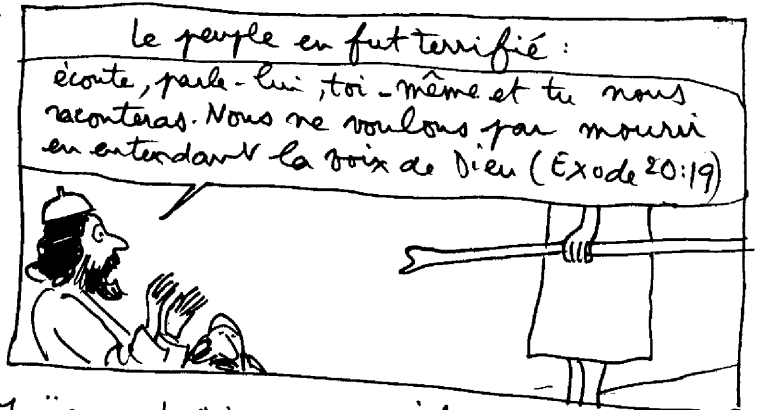 Le peuple en fut terrifié :
écoute, parle-lui, toi-même et tu nous
raconteras. Nous ne voulons pas mourir
en entendant la voix de Dieu (Exode 20:19)